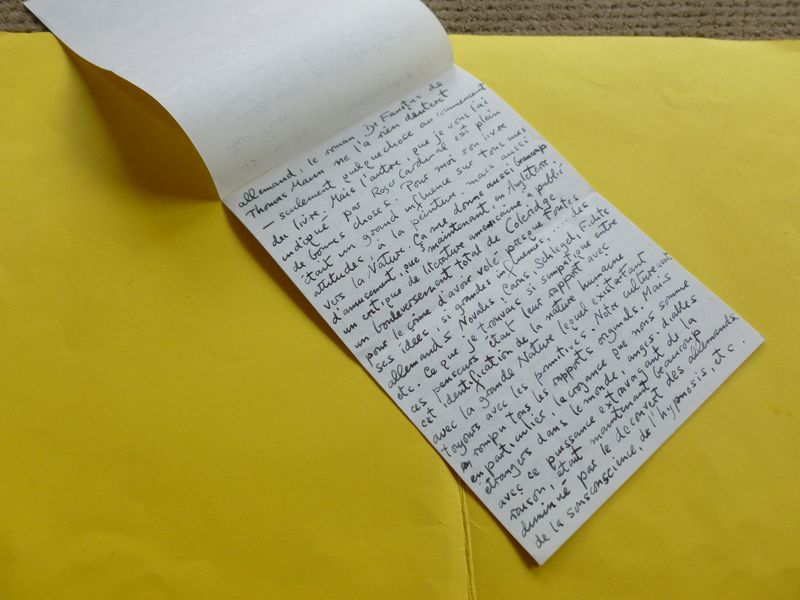 allemand, le roman Dr Faustus de
Thomas Mann ne l'a rien de tout
— seulement quelque chose au commencement
du livre. Mais l'autre, que je vous l'ai
indiqué par Roger Cardinal est plein
de bonnes choses. Pour moi son livre
était un grand influence sur tous mes
attitudes à la peinture mais aussi
vers la Nature. Ça me donne aussi beaucoup
d'amusement, que maintenant, en Angleterre,
un critique de literature americaine a publié
un bouleversement total de Coleridge
pour le crime d'avoir volé presque toutes
ses idées, si grandes influences, ... des
allemands Novalis, Carus, Schlegel, Fichte
etc. Ce que je trouvais si sympatique entre
ces penseurs était leur rapport avec
cet identification de la nature humaine
avec la grande Nature lequel existartant
toujours avec les primitives. Notre culture
en rompu tous les rapports originals. Mais
en particulier, la croyance que nous somme
étrangers dans le monde, anges, diables
avec ce puissance extravagant de la
raison, était maintenant beaucoup
diminué par le decouvert des allemands
de la sousconscience, de l'hypnosis etc.